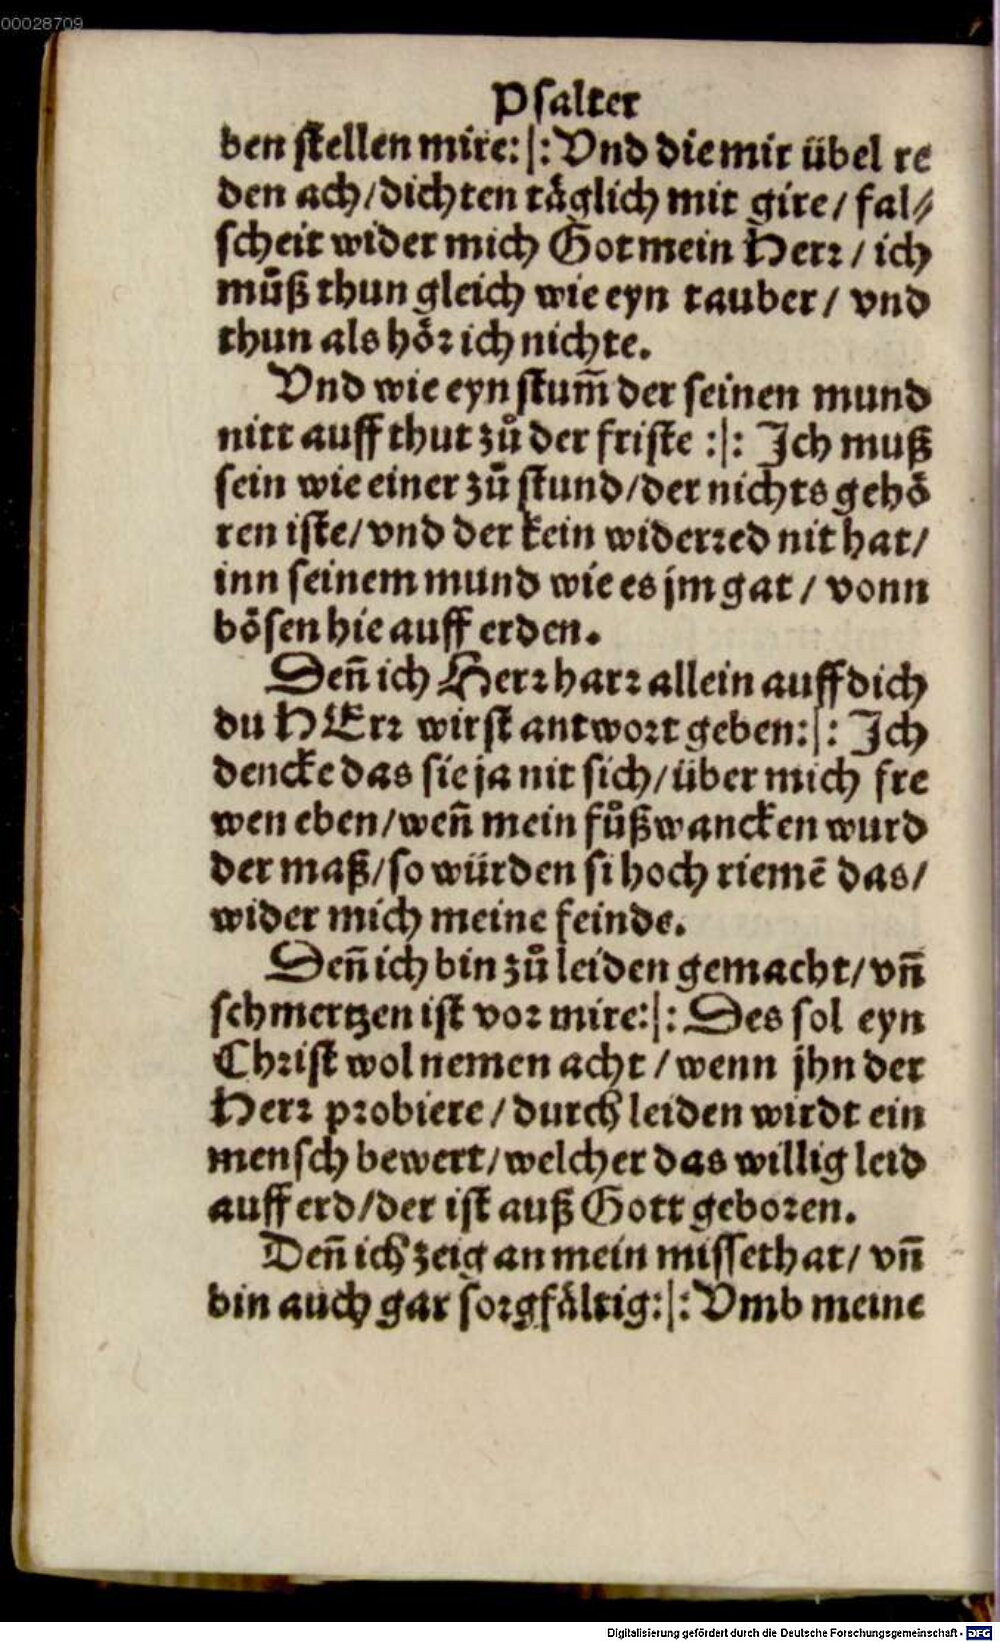 00028709
Psalter
ben stellen mire:|: Vnd die mir übel re
den ach/dichten täglich mit gire/ fal⸗
scheit wider mich Got mein Herr/ ich
můß thun gleich wie eyn tauber/ vnd
thun als hör ich nichte.
Vnd wie eyn stum̃ der seinen mund
nitt auff thut zů der friste :|: Ich muß
sein wie einer zů stund/der nichts gehö
ren iste/vnd der kein widerred nit hat/
inn seinem mund wie es jm gat/ vonn
bösen hie auff erden.
Deñ ich Herr harr allein auff dich
du HErr wirst antwort geben:|: Ich
dencke das sie ja nit sich/über mich fre
wen eben/weñ mein fůß wancken wurd
der maß/so würden si hoch riemẽ das/
wider mich meine feinde.
Deñ ich bin zů leiden gemacht/ vñ
schmertzen ist vor mire:|: Des sol eyn
Christ wol nemen acht/wenn jhn der
Herr probiere/durch leiden wirdt ein
mensch bewert/welcher das willig leid
auff erd/der ist auß Gott geboren.
Deñ ich zeig an mein missethat/ vñ
bin auch gar sorgfältig:|: Vmb meine
Digitalisierung gefördert durch die Deutsche Forschungsgemeinschaft - DFG